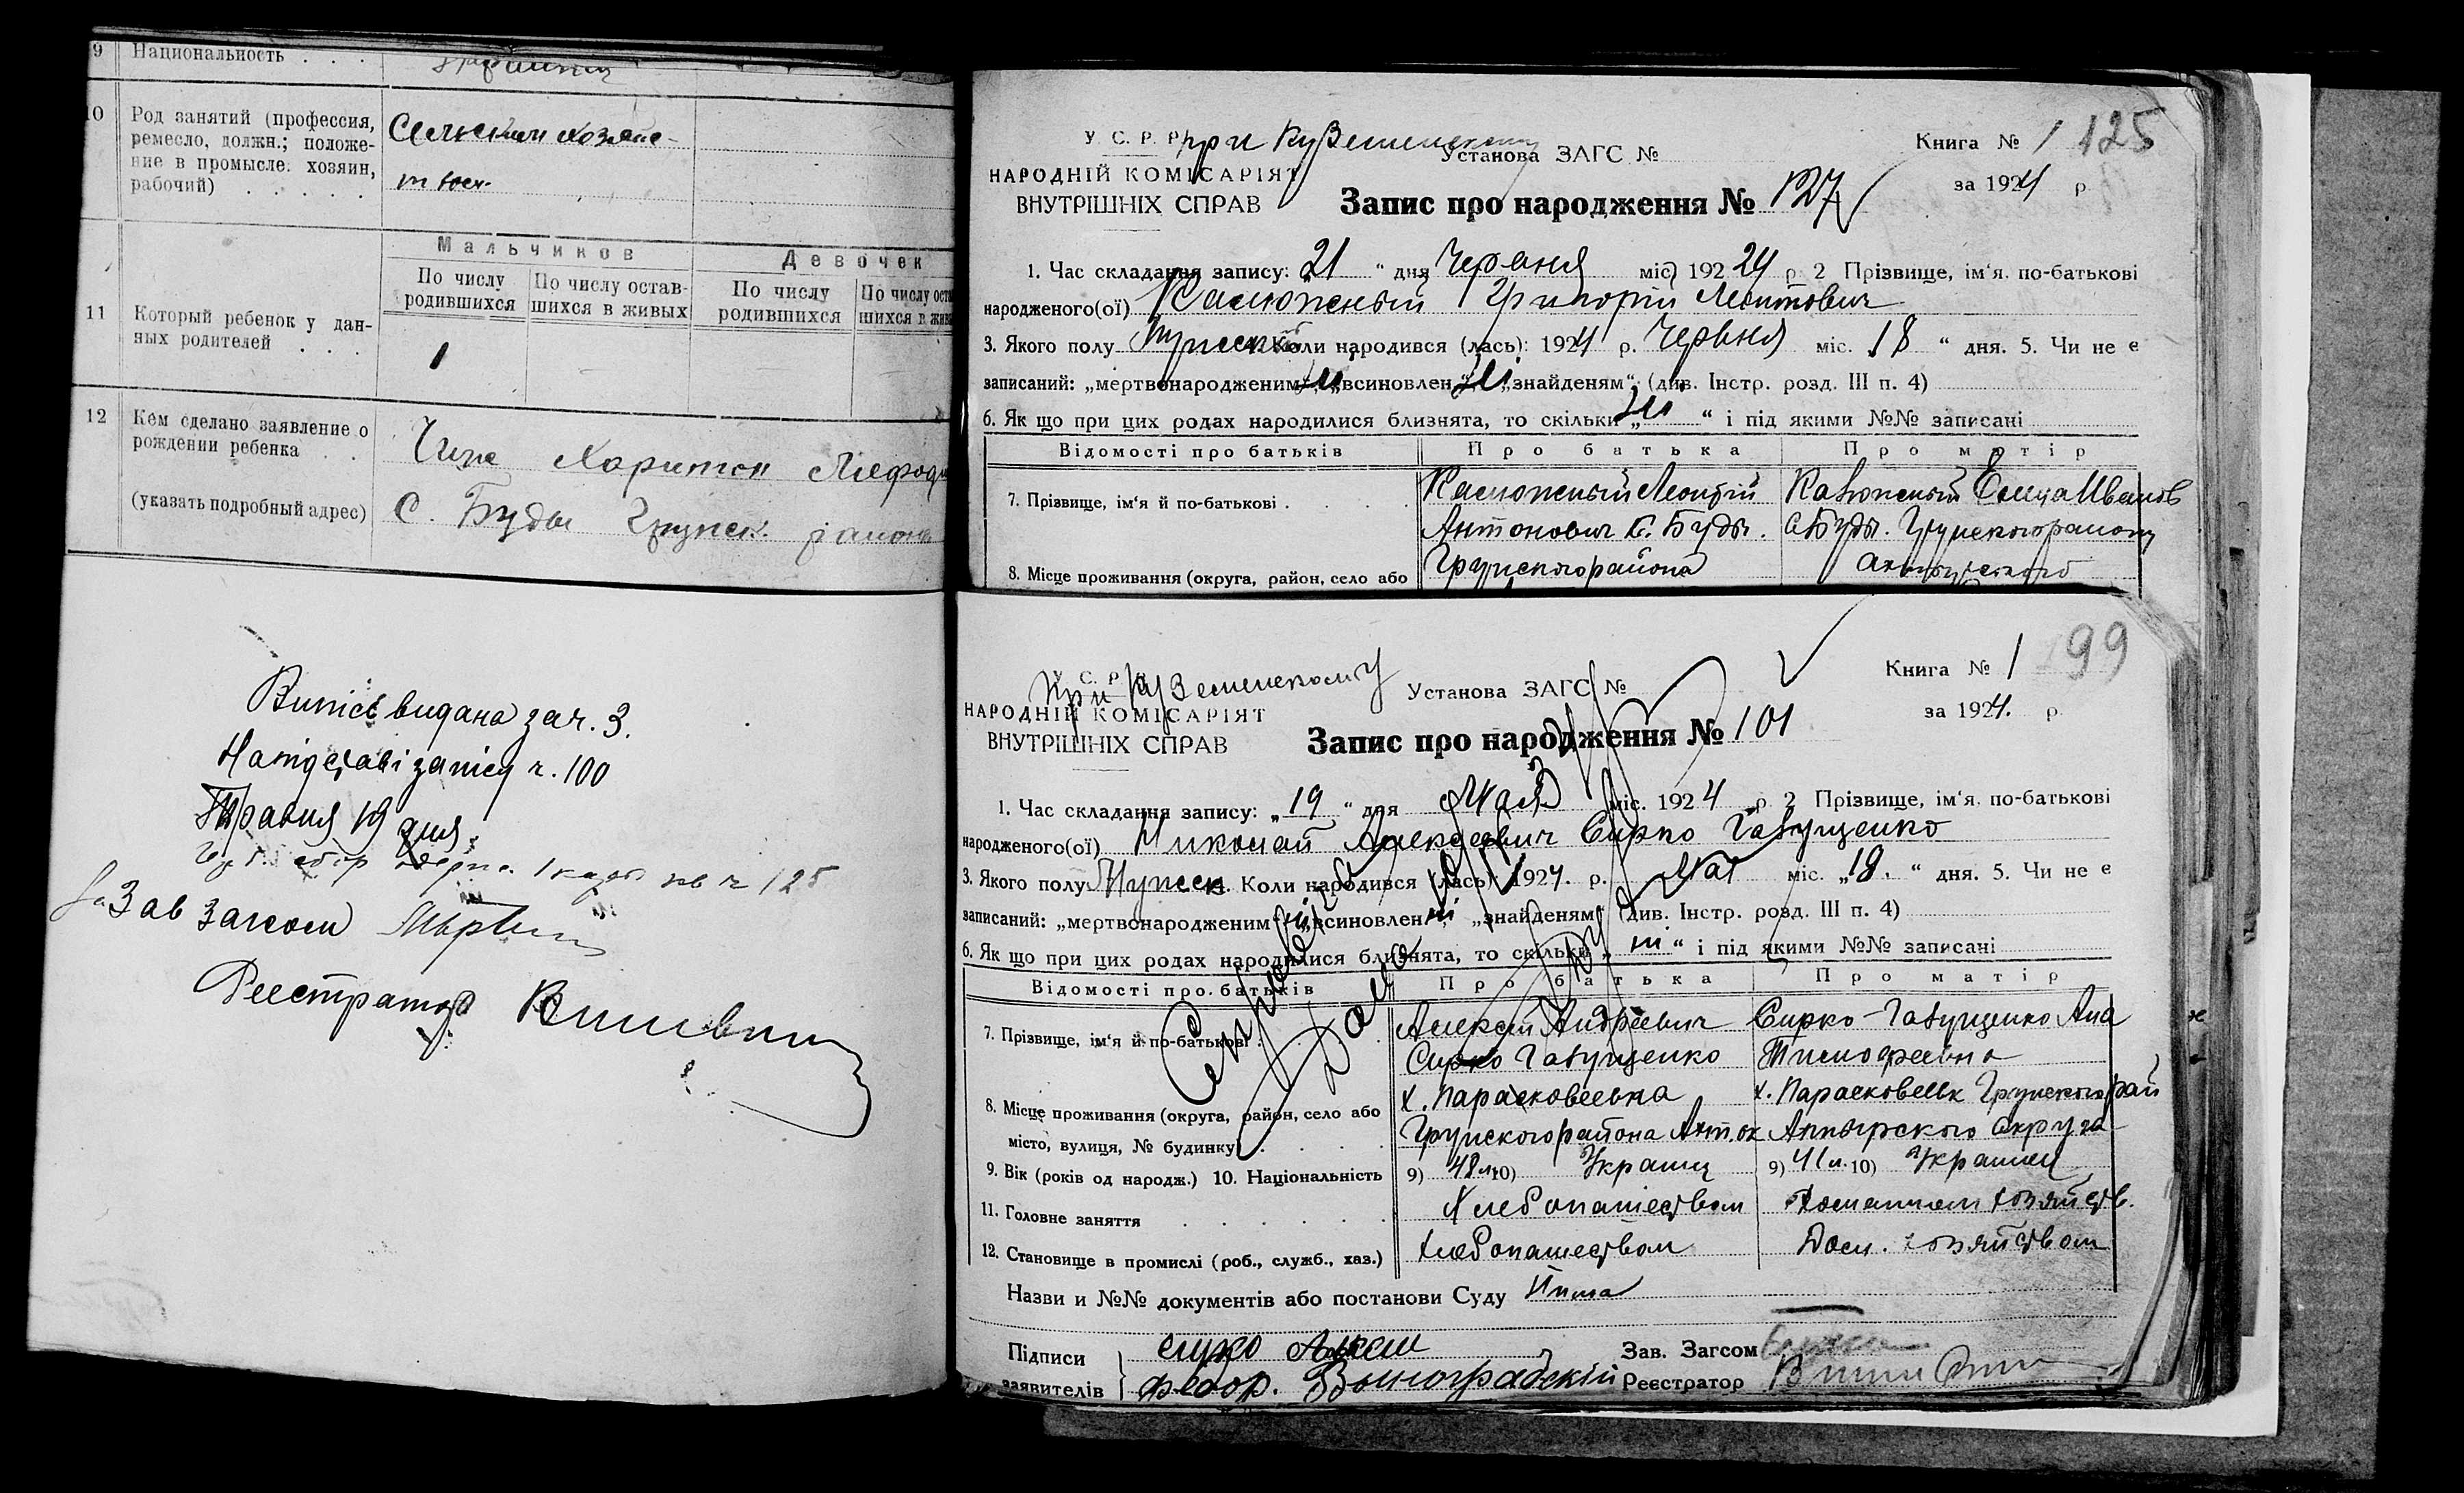 9 Национальность . . .
10 Род занятий (профессия,
ремесло, должн.; положе-
ние в промысле: хозяин,
рабочий) . . . . .
Сельским хозяйс-
твом.
Мальчиков Девочек
По числу родившихся
По числу остав-шихся в живых
По числу родившихся
По числу
11 Который ребенок у дан-
ных родителей . . .
1
12 Кем сделано заявление о
рождении ребенка . .
Харитон
(указать подробный адрес)
С. Буды Грунск. района
Випісь видана за ч. 3.
На підставі запісу ч. 100
Травня 19 дня.
ч 125
Зав Загсом
Реестратор
У. С. Р. Р.
при Куземенском
Установа ЗАГС №
Книга № 1 125
НАРОДНІЙ КОМІСАРІЯТ
ВНУТРІШНІХ СПРАВ
за 1924 р
Запис про народження № 127
1. Час складання запису: „21 “ дня Червня міс. 1924 р. 2 Прізвище, ім‘я. по-батькові
народженого(ої) Калюжный Григорій Леонтович
3. Якого полу Мужск. 4. Коли народився (лась): 1924 р. Червня міс. 18 “ дня. 5. Чи не є
записаний: „мертвонародженим“ ні, „всиновлен“ ні, „знайденям“ (див. Інстр. розд. III п. 4)
6. Як що при цих родах народилися близнята, то скільки „ ні “ і під якими №№ записані
Відомості про батьків Про батька Про матір
7. Прізвище, ім‘я й по-батькові . . . .
Калюжный Леонтій
Антонович С. Буды.
Калюжный Иванов
С Буды. Грунскогорайону
8. Місце проживання (округа, район, село або
Грунскогорайона
У. С. Р. Р.
При Куземенскому
Установа ЗАГС №
Книга № 1 99
НАРОДНІЙ КОМІСАРІЯТ
ВНУТРІШНІХ СПРАВ
за 1924. р.
Запис про народження № 101
1. Час складання запису: „19 “ дня Мая міс. 1924 р 2 Прізвище, ім‘я. по-батькові
народженого(ої) Николай Алексеевич Сирко Гавущенко
3. Якого полу Мужск. 4. Коли народився (лась) 1924. р. Мая міс. „18. “ дня. 5. Чи не є
записаний: „мертвонародженим“ ні, „всиновлен“ ні, „знайденям“ (див. Інстр. розд. III п. 4)
6. Як що при цих родах народилися близнята, то скільки „ ні “ і під якими №№ записані
Відомості про батьків Про батька Про матір
7. Прізвище, ім‘я й по-батькові .
Алексей Андреевич
Сирко Гавущенко
Сирко-Гавущенко Ана
Тимофеевна
8. Місце проживання (округа, район, село або
місто, вулиця, № будинку) . . . .
х. Парасковеевка
Грунскогорайона Ахт. ок
х. Парасковеевк Грунскогорай
Ахтырского Округа
9. Вік (років од народж.) 10. Національність
9) 48 л. 10) Украинц
9) 41 л. 10) Украинц
11. Головне заняття . . . . . .
Хлебопашеством
Домашнем хозяйств.
12. Становище в промислі (роб., служб., хаз.)
хлебопашеством
Дом. хозяйством
Назви и №№ документів або постанови Суду Нима
Підписи
заявителів
сирко Алксии
федор. Виноградскій
Зав. Загсом
Реєстратор